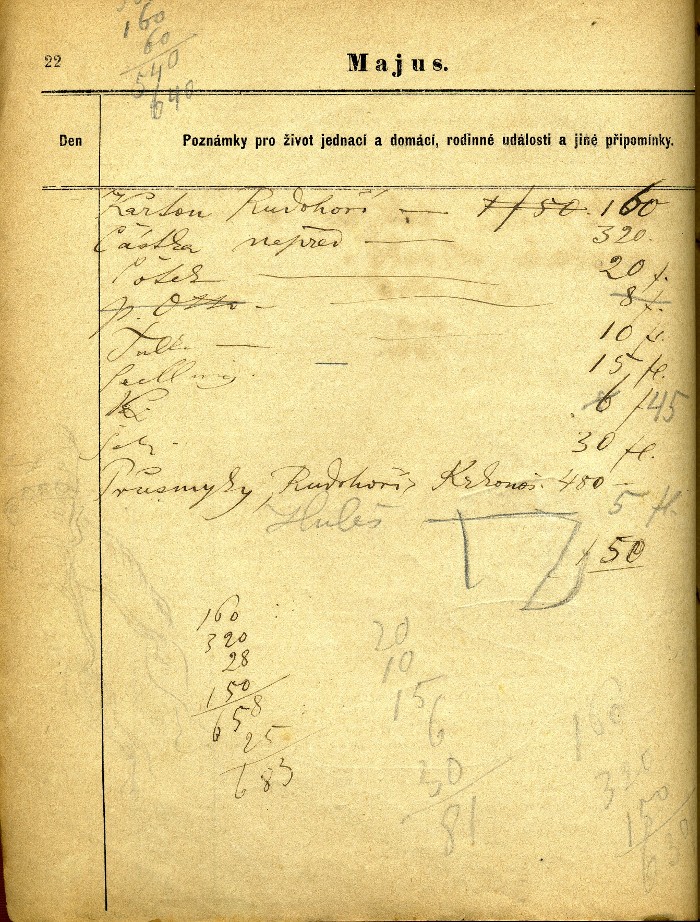 160
60
540
640
22
Majus.
Den
Poznámky pro život jednací a domácí, rodinné události a jiné připomínky.
Karton Rudohoří — 160
Částka nepřed — 320.
20 f.
p. Otto - 8 f.
10 fl.
15 fl.
6 f 45
30 fl.
Průsmyky, Rudohoří, Krkonoš. 480 -
Hubeš — 5 fl.
150
160
320
28
150
658
25
683
20
10
15
6
30
81
160
320
150
630